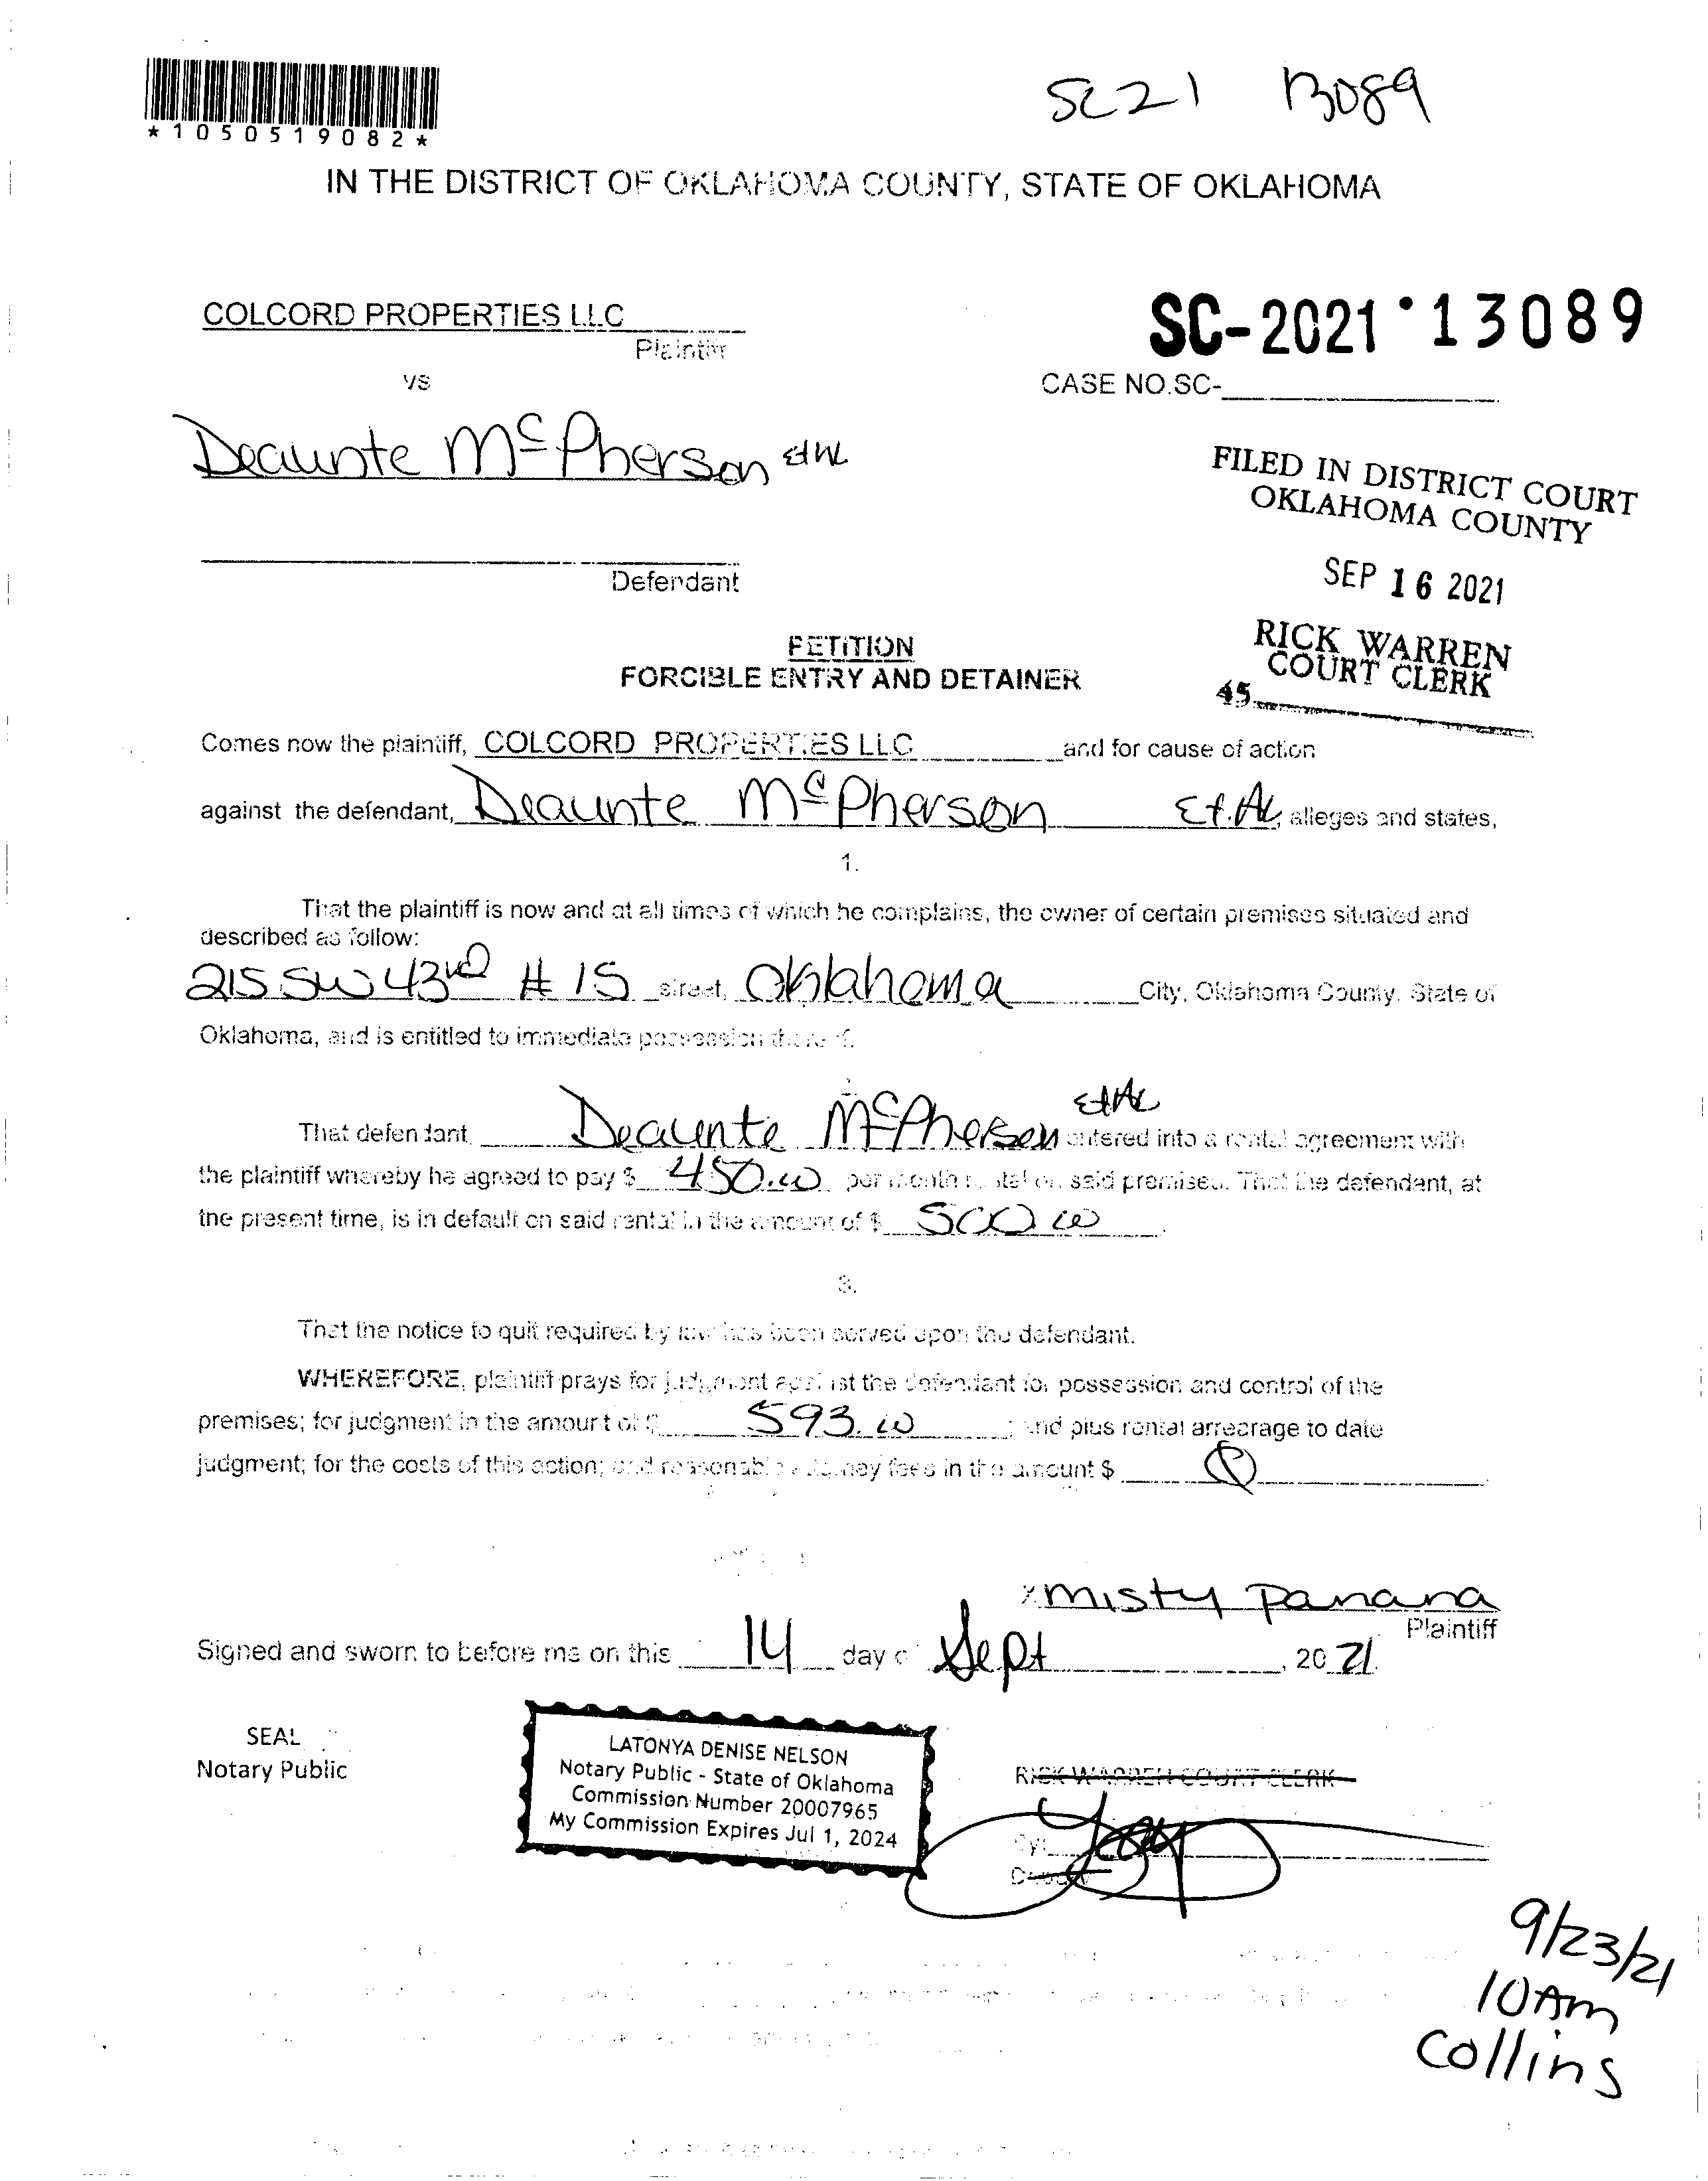 SC21 13089
*1050519082*
IN THE DISTRICT OF OKLAHOMA COUNTY, STATE OF OKLAHOMA
COLCORD PROPERTIES LLC
Plaintiff
SC-2021 • 13089
vs
CASE NO.SC-
Deaunte McPherson Et Al
FILED IN DISTRICT COURT
OKLAHOMA COUNTY
Defendant
SEP 16 2021
PETITION
RICK WARREN
COURT CLERK
FORCIBLE ENTRY AND DETAINER
45
Comes now the plaintiff, COLCORD PROPERTIES LLC and for cause of action
against the defendant, Deaunte McPherson Et. Al, alleges and states,
1.
That the plaintiff is now and at all times of which he complains, the owner of certain premises situated and
described as follow:
215 SW 43rd # 15 street, Oklahoma City, Oklahoma County, State of
Oklahoma, and is entitled to immediate possession thereof.
That defendant, Deaunte McPherson Et Al entered into a rental agreement with
the plaintiff whereby he agreed to pay $ 450.00 per month rental on said premises. That the defendant, at
the present time, is in default on said rental in the amount of $ 500 00
3.
That the notice to quit required by law has been served upon the defendant.
WHEREFORE, plaintiff prays for judgment against the defendant for possession and control of the
premises; for judgment in the amount of $ 593.00 ; and plus rental arrearage to date
judgment; for the costs of this action; and reasonable attorney fees in the amount $
x Misty Panana
Plaintiff
Signed and sworn to before me on this 14 day of Sept, 20 21.
SEAL
Notary Public
LATONYA DENISE NELSON
Notary Public - State of Oklahoma
Commission Number 20007965
My Commission Expires Jul 1, 2024
RICK WARREN COURT CLERK
By:
Deputy
9/23/21
10 Am
Collins